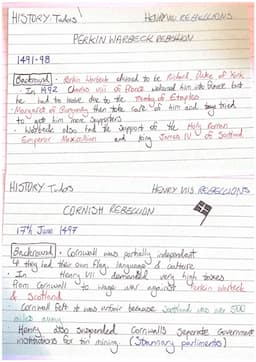 HISTORY: Tudors HENRY VII REBELLIONS
PERKIN WARBECK REBELLION
1491-98
Background • Perkin Warbeck claimed to be Richard, Duke of York
• In 1492 Charles VIII of France welcomed him into France but
he had to leave due to the Treaty of Etaples
• Margaret of Burgundy then took care of him and they tried
to get him more supporters
• Warbeck also had the support of the Holy Roman
Emperor Maximilian and King James IV of Scotland
HISTORY Tudors HENRY VII'S REBELLIONS
CORNISH REBELLION
17th June 1497
Background • Cornwall was partially independent
& they had their own flag, language & culture
• In Henry VII demanded very high taxes
from Cornwall to wage war against Perkin Warbeck
& Scotland
• Cornwall felt it was unfair because Scotland was over 500
miles away
• Henry also suspended Cornwalls Separate Government
institutions for tin mining (Stannary parliments)